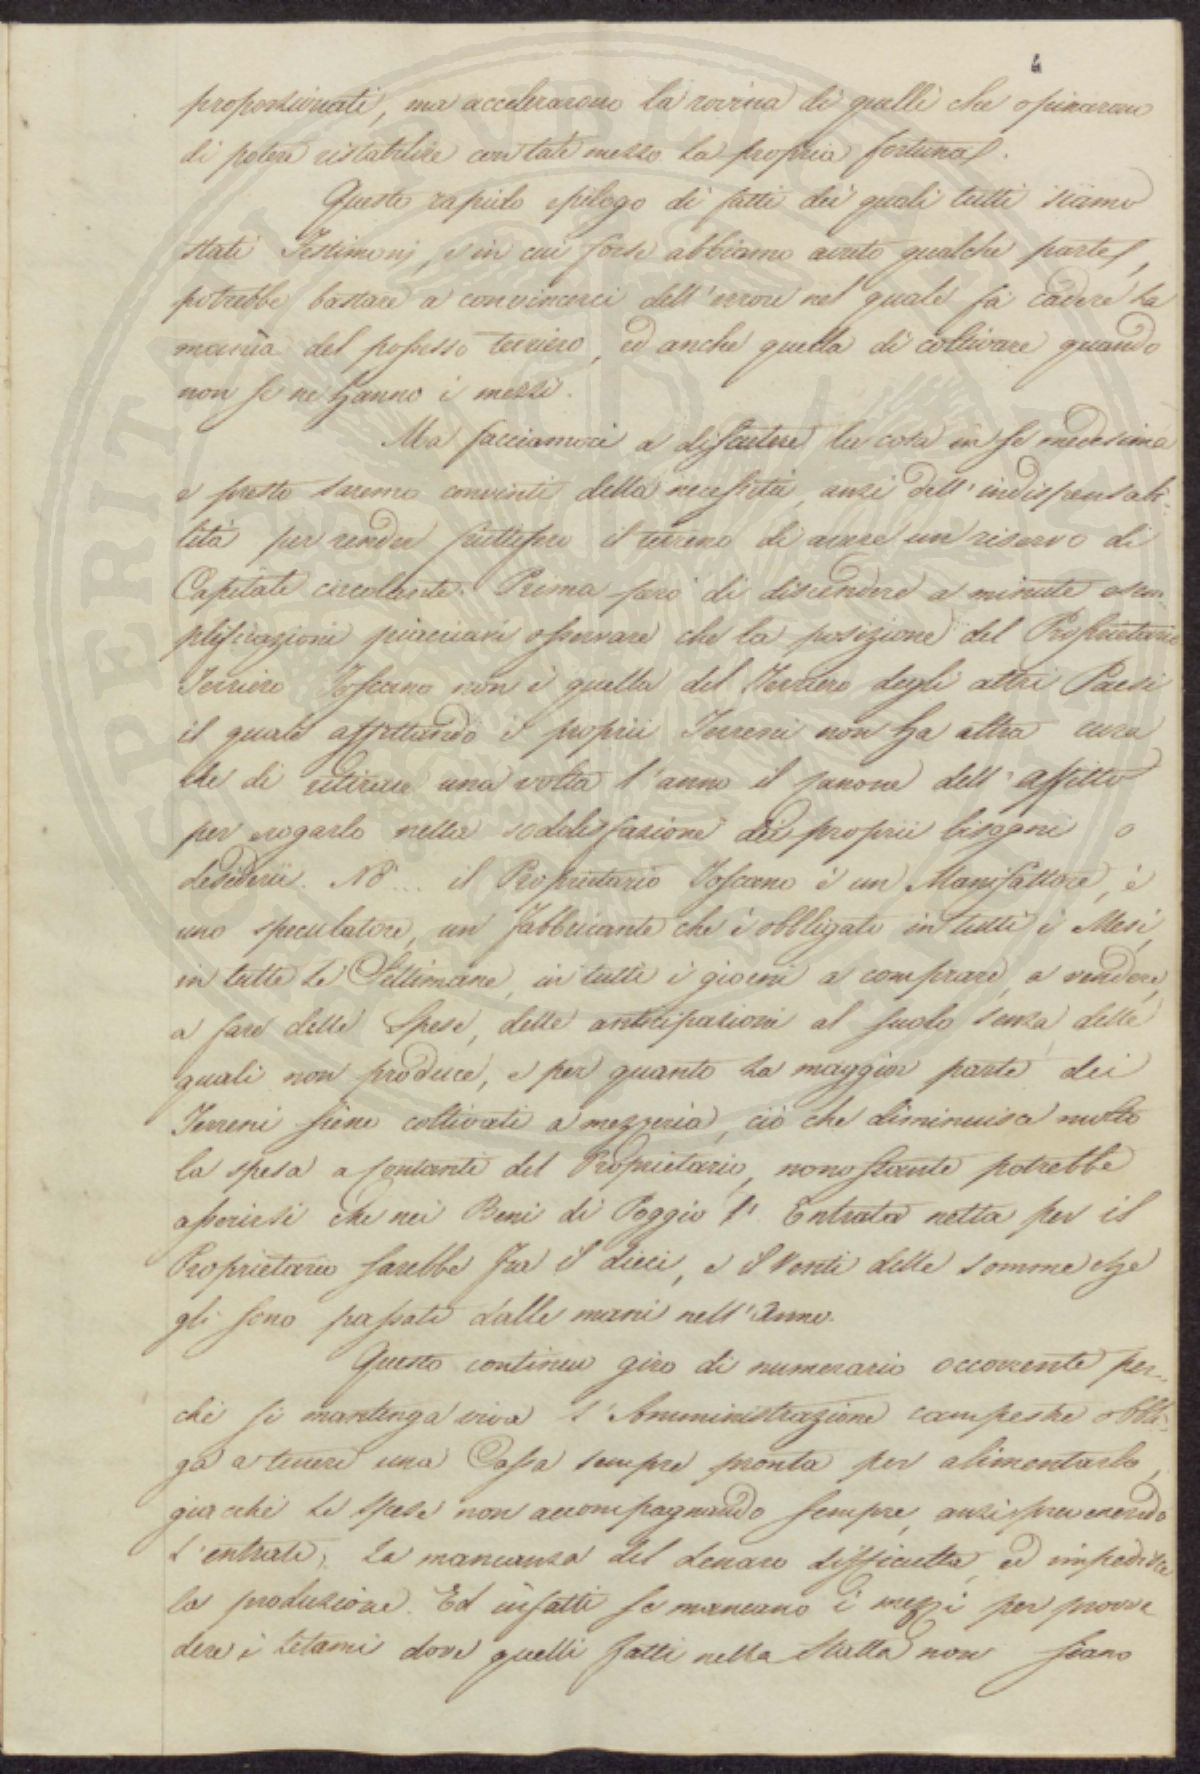 4
proporzionati, ma accelerarono la rovina di quelli che opinarono
di potere ristabilire con tale mezzo la propria fortuna.
Questo rapido epilogo di fatti dei quali tutti siamo
stati Testimonj, e in cui forse abbiamo avuto qualche parte,
potrebbe bastare a convincerci dell'errore nel quale fà cadere la
manìa del possesso terriero, ed anche quella di coltivare quando
non se ne hanno i mezzi.
Ma facciamoci a discutere la cosa in se medesima
e presto saremo convinti della necessità, anzi dell'indispensabi-
lità per render fruttifero il terreno di avere un riservo di
Capitale circolante. Prima però di discendere a minute esem-
plificazioni piacciavi osservare che la posizione del Proprietario
Terriero Toscano non è quella del Terriero degli altri Paesi
il quale affittando i proprii Terreni non ha altra cura
che di ritirare una volta l'anno il canone dell'affitto
per erogarlo nella sodisfazione dei proprii bisogni o
desiderii. Nò... il Proprietario Toscano è un Manifattore, è
uno speculatore, un Fabbricante che è obbligato in tutti i Mesi,
in tutte le Settimane, in tutti i giorni a comprare, a vendere,
a fare delle Spese, delle anticipazioni al suolo senza delle
quali non produce, e per quanto la maggior parte dei
Terreni siene coltivati a mezzeria, ciò che diminuisce molto
la spesa a contante del Proprietario, nonostante potrebbe
asserirsi che nei Beni di Poggio l'Entrata netta per il
Proprietario sarebbe fra il dieci, e il Venti delle somme che
gli sono passate dalle mani nell'Anno.
Questo continuo giro di numerario occorrente per-
chè si mantenga viva l'Amministrazione campestre obbli-
ga a tenere una Cassa sempre pronta per alimentarlo,
giacchè le spese non accompagnando sempre, anzi prevenendo
l'entrate, la mancanza del denaro difficulta, ed impedisce
la produzione. Ed infatti se mancano i mezzi per provve
dere i letami dove quelli fatti nella Stalla non siano